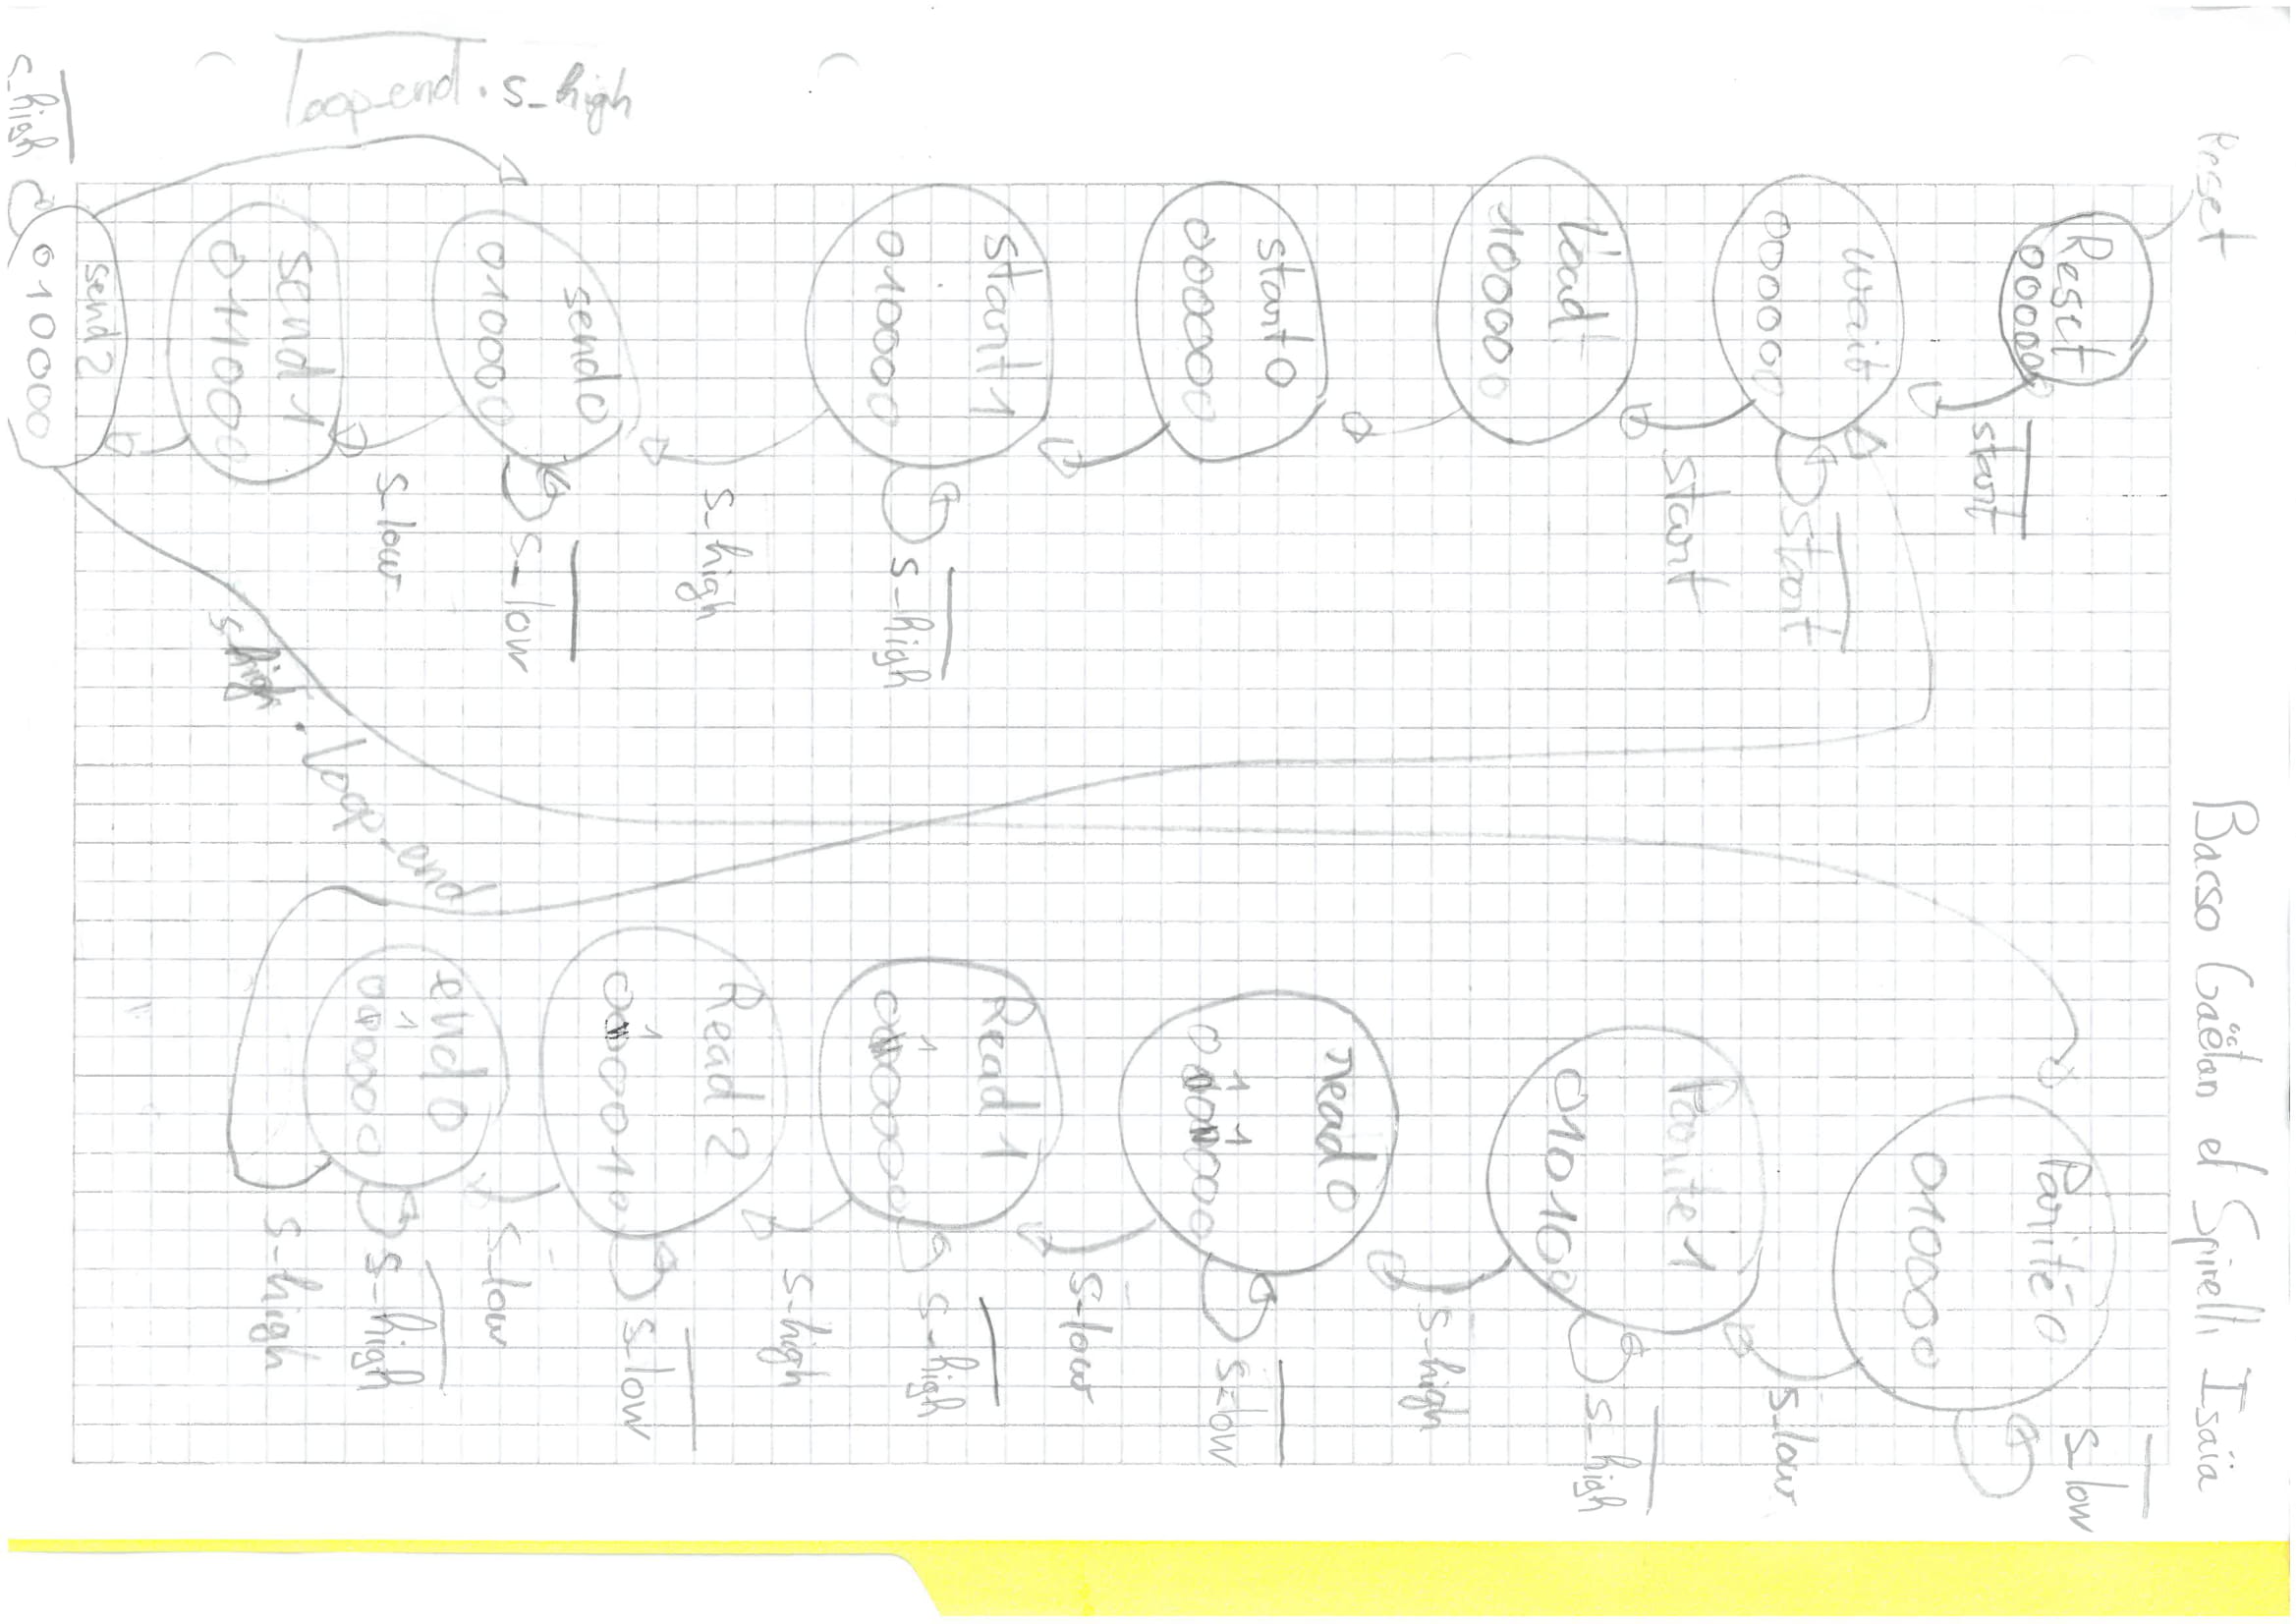 Bacso Gaëtan et Spirelli Isaïa
Reset
Reset
00000
start
wait
000000
start
start
Load
100000
start 0
000000
start 1
010000
s_high
s_high
send 0
010000
s_low
s_low
send 1
011000
send 2
010000
s_high
Loop_end . s_high
s_high . Loop_end
Parité 0
010000
s_low
s_low
Parite 1
010100
s_high
s_high
read 0
s_low
s_low
Read 1
s_high
s_high
Read 2
s_low
s_low
end 0
s_high
s_high